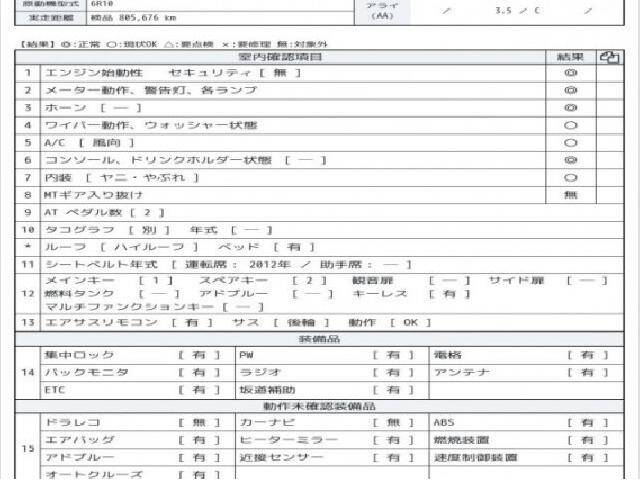 原動機型式 6R10
実走距離 検品 805,676 km
アライ (AA) / 3.5 / C /
【結果】◎:正常 ○:現状OK △:要点検 ×:要修理 無:対象外
室内確認項目 結果
1 エンジン始動性 セキュリティ [ 無 ] ◎
2 メーター動作、警告灯、各ランプ ◎
3 ホーン [ ― ] ◎
4 ワイパー動作、ウォッシャー状態 ○
5 A/C [ 風向 ] ○
6 コンソール、ドリンクホルダー状態 [ ― ] ◎
7 内装 [ ヤニ・やぶれ ] ○
8 MTギア入り抜け 無
9 AT ペダル数 [ 2 ]
10 タコグラフ [ 別 ] 年式 [ ― ]
* ルーフ [ ハイルーフ ] ベッド [ 有 ]
11 シートベルト年式 [ 運転席: 2012年 / 助手席: ― ]
12 メインキー [ 1 ] スペアキー [ 2 ] 観音扉 [ ― ] サイド扉 [ ― ]
燃料タンク [ ― ] アドブルー [ ― ] キーレス [ 有 ]
マルチファンクションキー [ ― ]
13 エアサスリモコン [ 有 ] サス [ 後輪 ] 動作 [ OK ]
装備品
14 集中ロック [ 有 ] PW [ 有 ] 電格 [ 有 ]
バックモニタ [ 有 ] ラジオ [ 有 ] アンテナ [ 有 ]
ETC [ 有 ] 坂道補助 [ 有 ]
動作未確認装備品
15 ドラレコ [ 無 ] カーナビ [ 無 ] ABS [ 有 ]
エアバッグ [ 有 ] ヒーターミラー [ 有 ] 燃焼装置 [ 有 ]
アドブルー [ 有 ] 近接センサー [ 有 ] 速度制御装置 [ 有 ]
オートクルーズ [ 有 ]